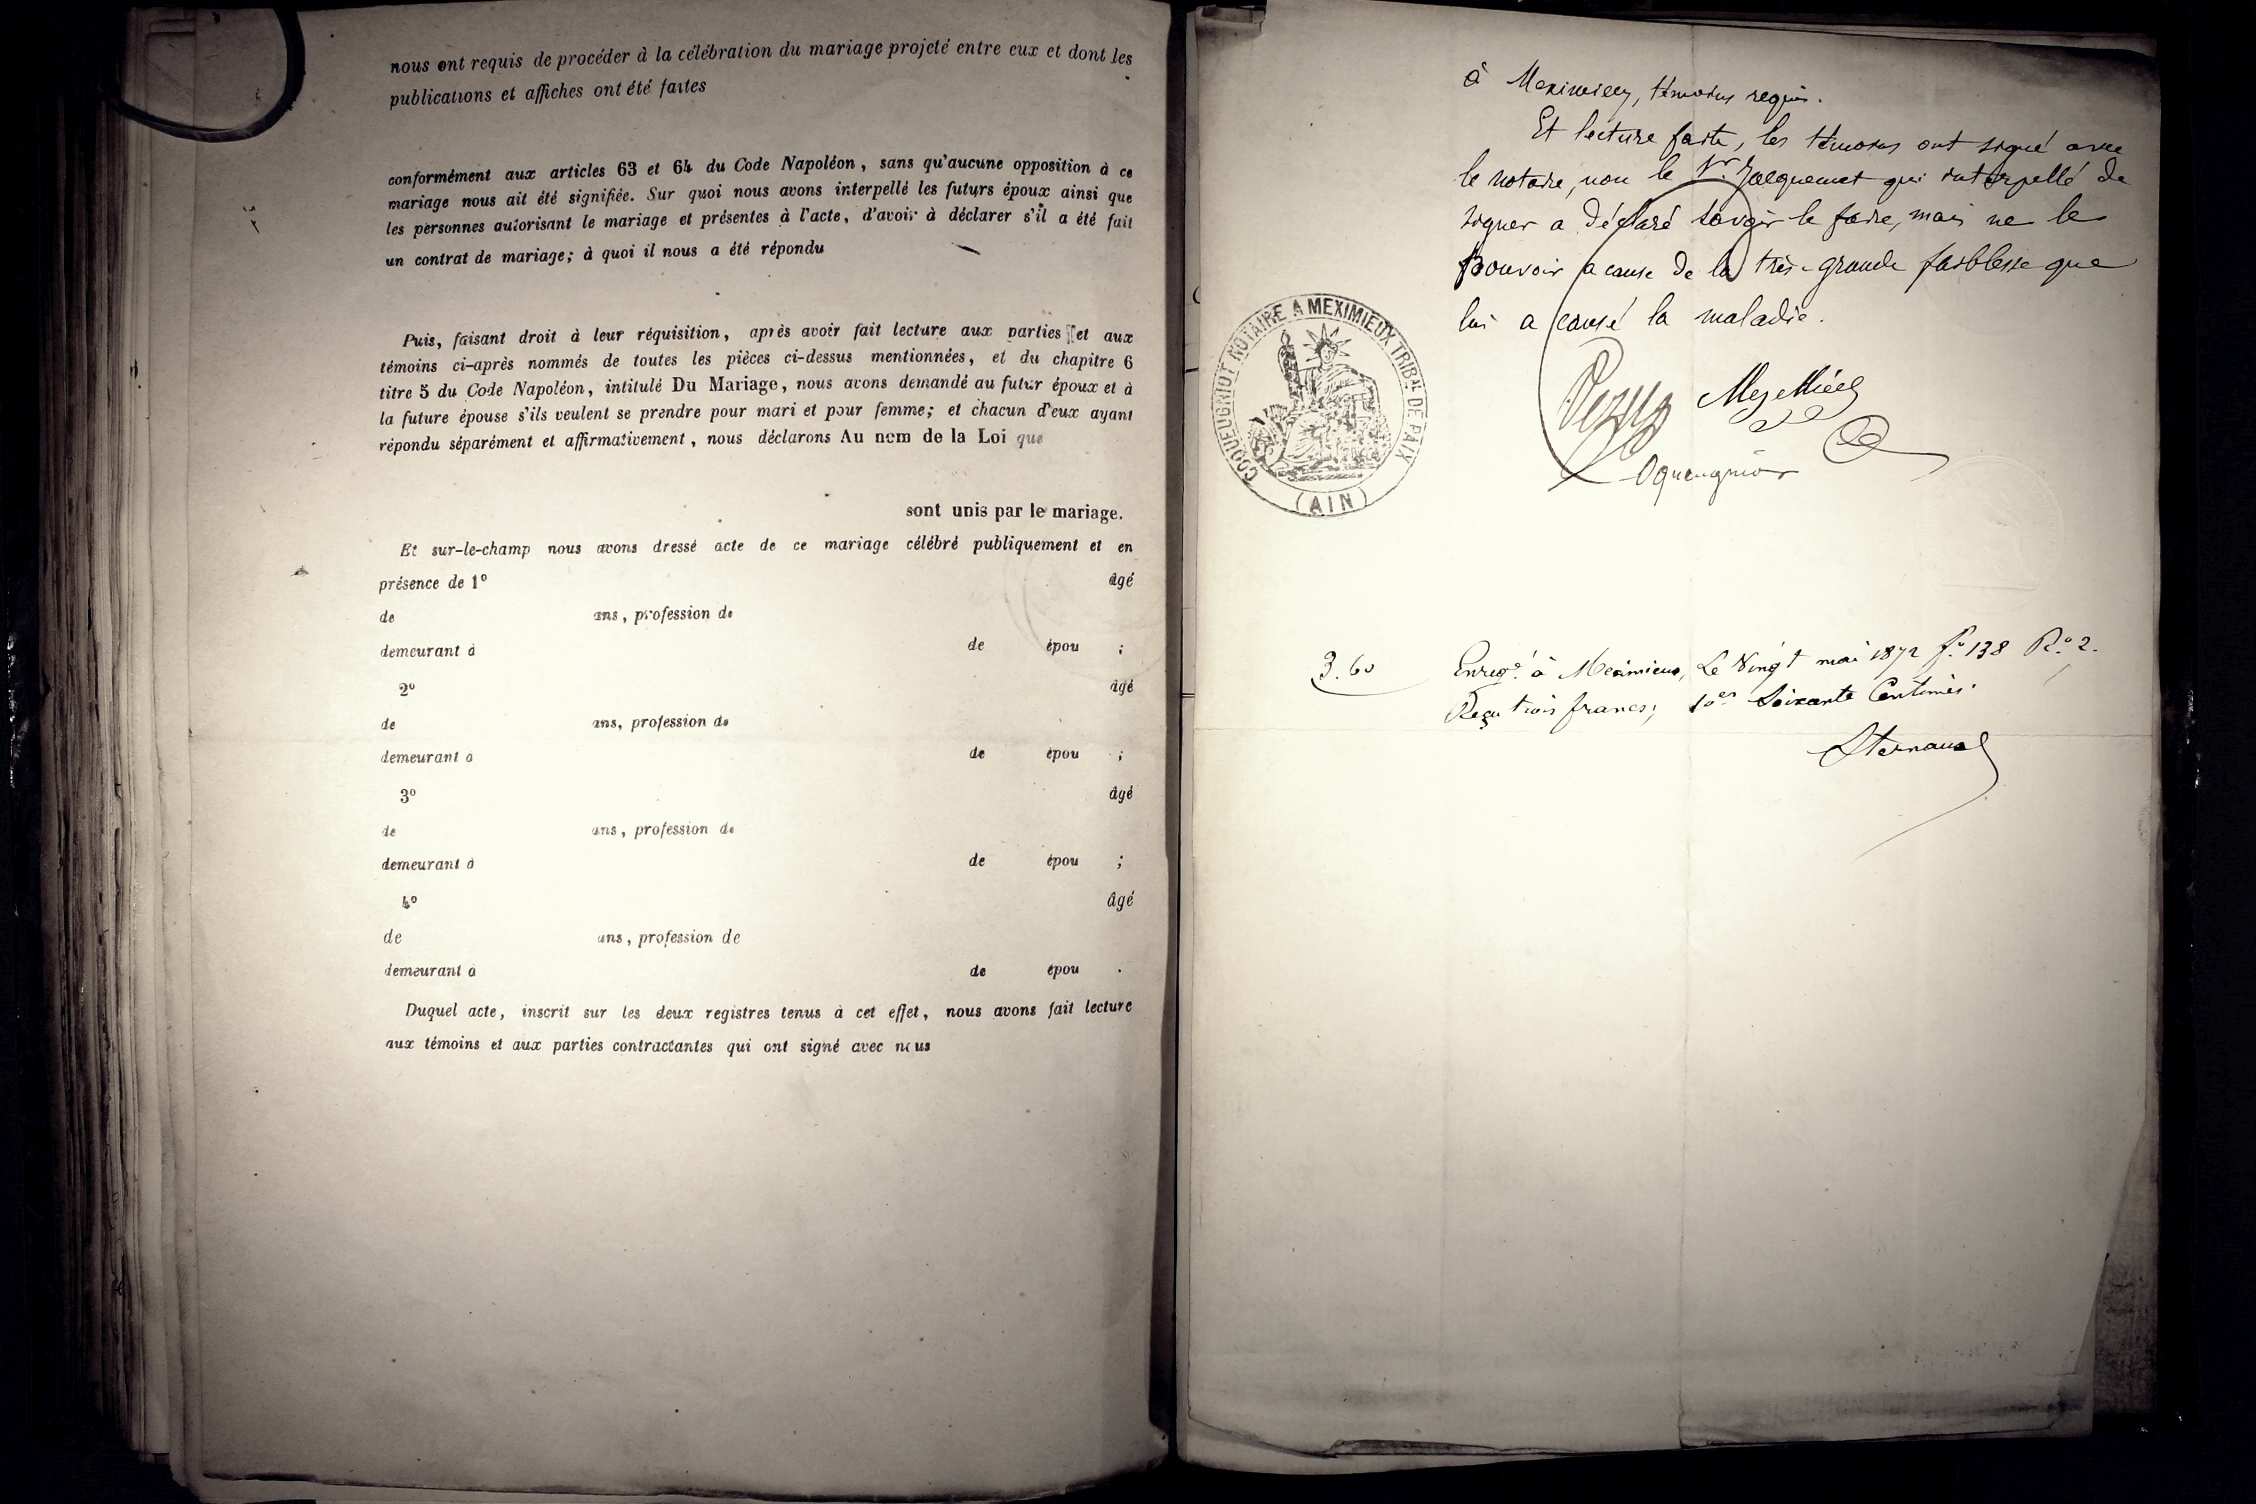 nous ont requis de procéder à la célébration du mariage projeté entre eux et dont les
publications et affiches ont été faites
conformément aux articles 63 et 64 du Code Napoléon, sans qu'aucune opposition à ce
mariage nous ait été signifiée. Sur quoi nous avons interpellé les futurs époux ainsi que
les personnes autorisant le mariage et présentes à l'acte, d'avoir à déclarer s'il a été fait
un contrat de mariage; à quoi il nous a été répondu
Puis, faisant droit à leur réquisition, après avoir fait lecture aux parties et aux
témoins ci-après nommés de toutes les pièces ci-dessus mentionnées, et du chapitre 6
titre 5 du Code Napoléon, intitulé Du Mariage, nous avons demandé au futur époux et à
la future épouse s'ils veulent se prendre pour mari et pour femme; et chacun d'eux ayant
répondu séparément et affirmativement, nous déclarons Au nom de la Loi que
sont unis par le mariage.
Et sur-le-champ nous avons dressé acte de ce mariage célébré publiquement et en
présence de 1° âgé
de ans, profession de
demeurant à de épou ;
2° âgé
de ans, profession de
demeurant à de épou ;
3° âgé
de ans, profession de
demeurant à de épou ;
4° âgé
de ans, profession de
demeurant à de épou .
Duquel acte, inscrit sur les deux registres tenus à cet effet, nous avons fait lecture
aux témoins et aux parties contractantes qui ont signé avec nous
à Meximieux, témoins requis.
Et lecture faite, les témoins ont signé avec
le notaire, non le Sr. Jacquemet qui interpellé de
signer a déclaré savoir le faire, mais ne le
pouvoir à cause de la très-grande faiblesse que
lui a causé la maladie.
COQUEUGNIOT NOTAIRE A MEXIMIEUX TRIBAL DE PAIX
(AIN)
Coqueugniot
3.60
Enregé. à Meximieux, Le Vingt mai 1872 fo. 138 Ro. 2.
Reçu trois francs; 10es Soixante Centimes.